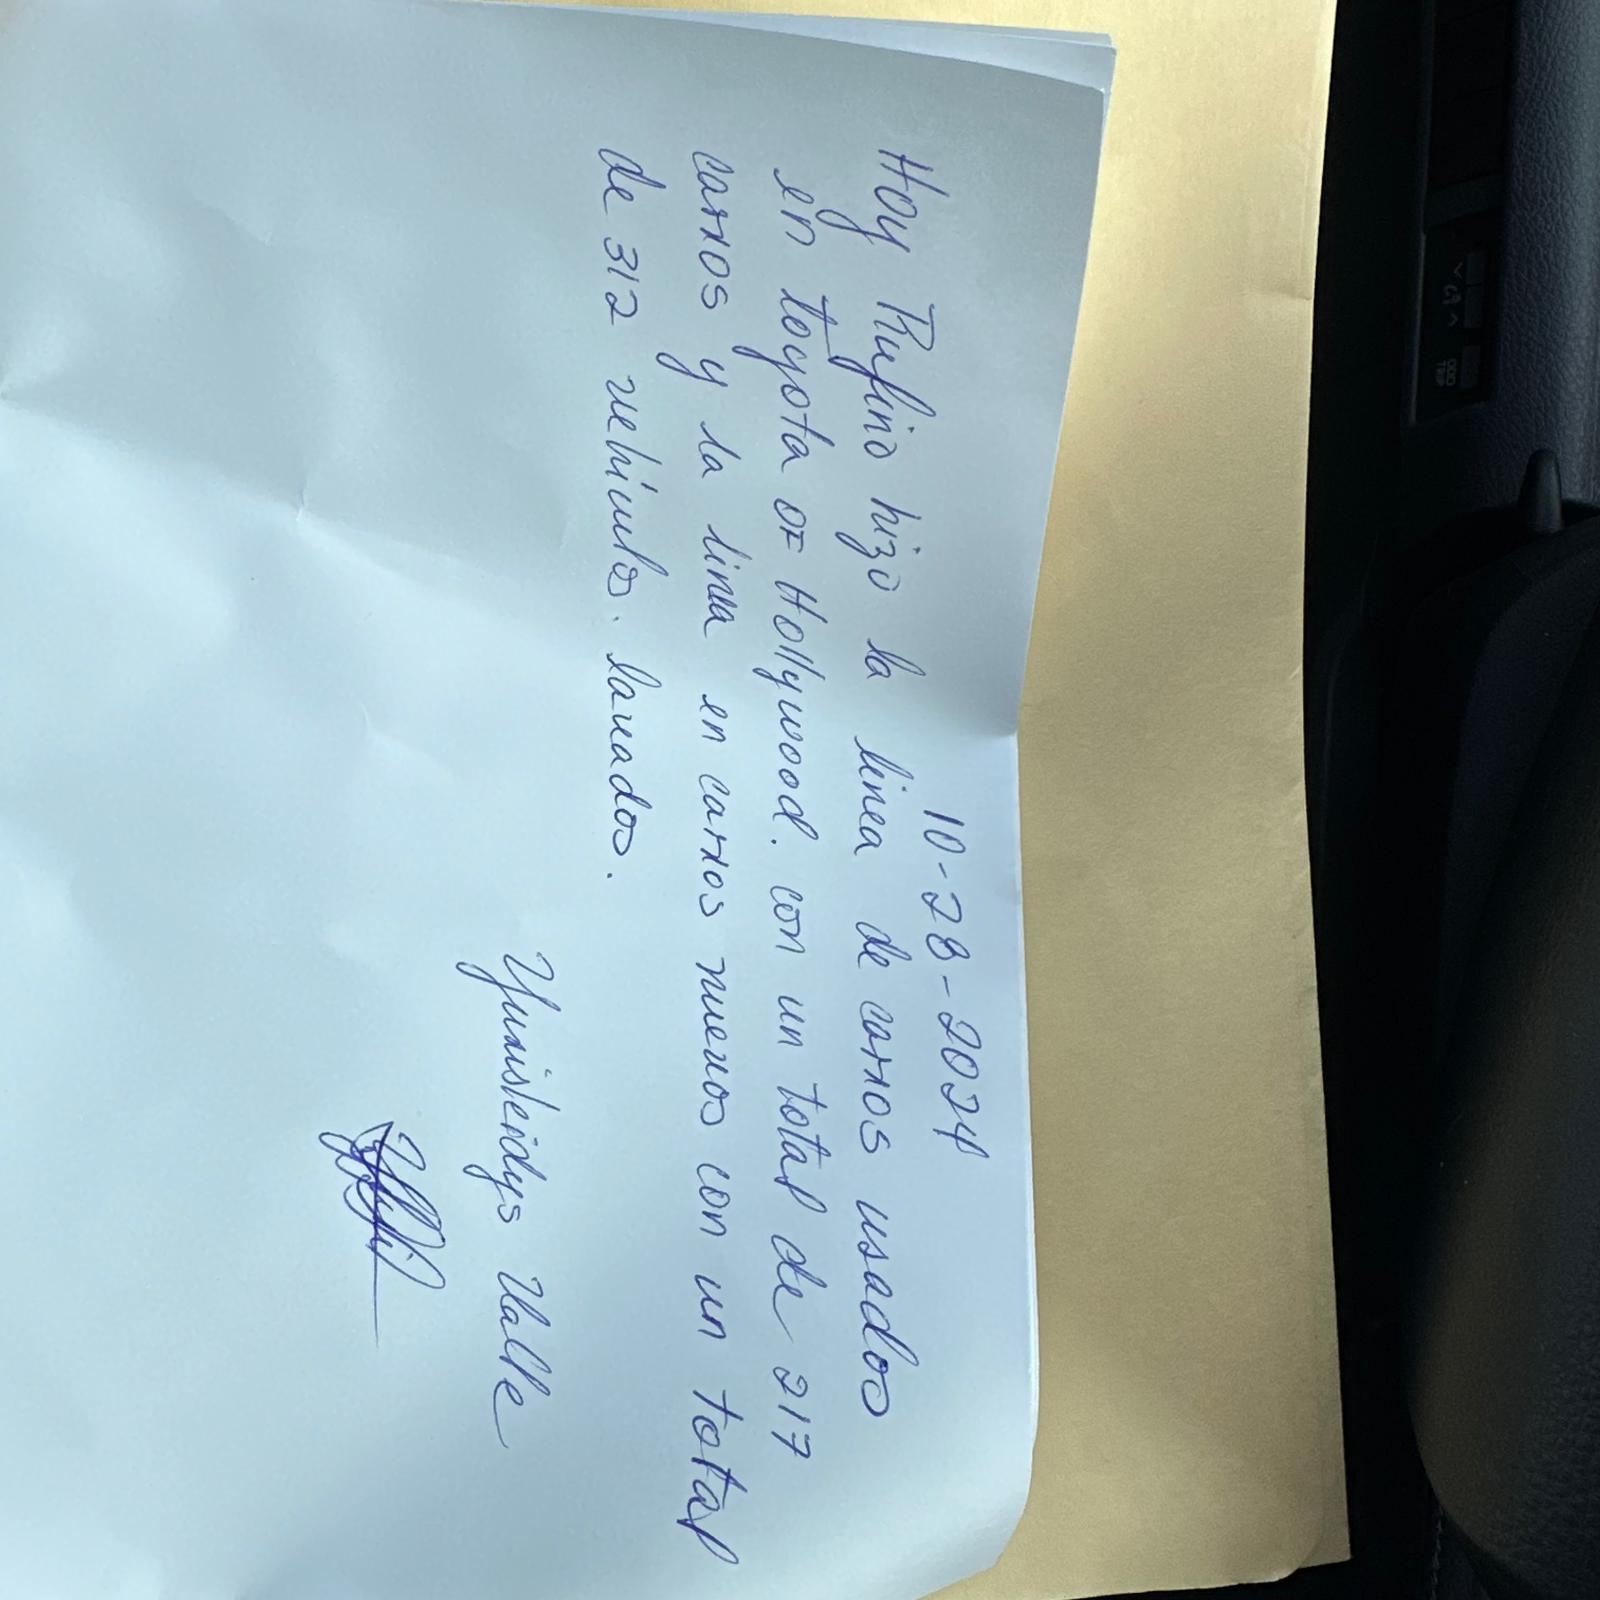 10-28-2024
Hoy Rufino hizo la linea de carros usados
en toyota of Hollywood. con un total de 217
carros y la linea en carros nuevos con un total
de 312 vehículos. lavados.
Yunisleidys Valle